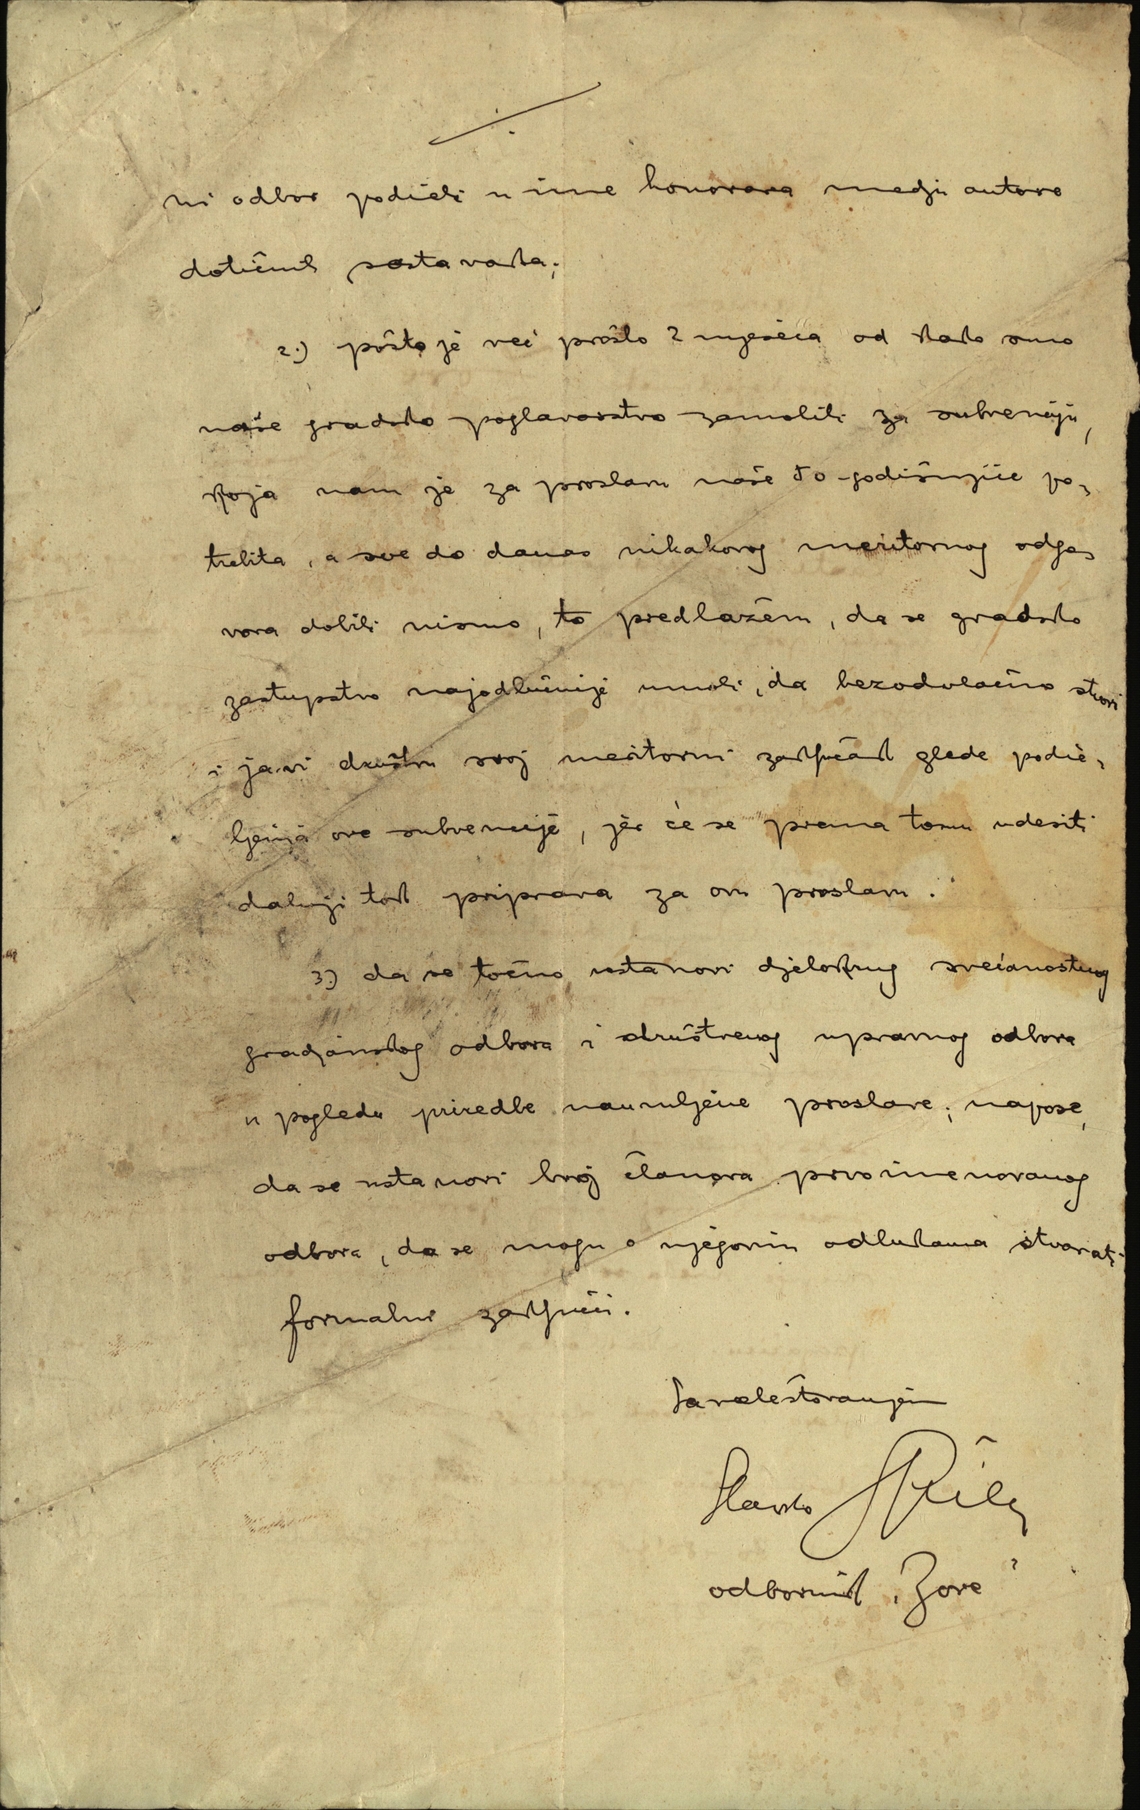 ni odbor podieli u ime honorara medju autore
dotičnih sastavaka;
2.) pošto je već prošlo 2 mjeseca od kako smo
naše gradsko poglavarstvo zamolili za subvenciju,
koja nam je za proslavu naše 50-godišnjice po-
trebita, a sve do danas nikakovog meritornog odgo-
vora dobili nismo, to predlažem, da se gradsko
zastupstvo najodlučnije umoli, da bezodvlačno stvori
i javi društvu svoj meritorni zaključak glede podie-
ljenja ove subvencije, jer će se prema tomu udesiti
daljnji tok priprava za ovu proslavu.
3.) da se točno ustanovi djelokrug svečanostnog
gradjanskog odbora i društvenog upravnog odbora
u pogledu priredbe naumljene proslave; napose,
da se ustanovi broj članova prvoimenovanog
odbora, da se mogu o njegovim odlukama stvarati
formalni zaključci.
Sa veleštovanjem
Slavko
odbornik „Zore"